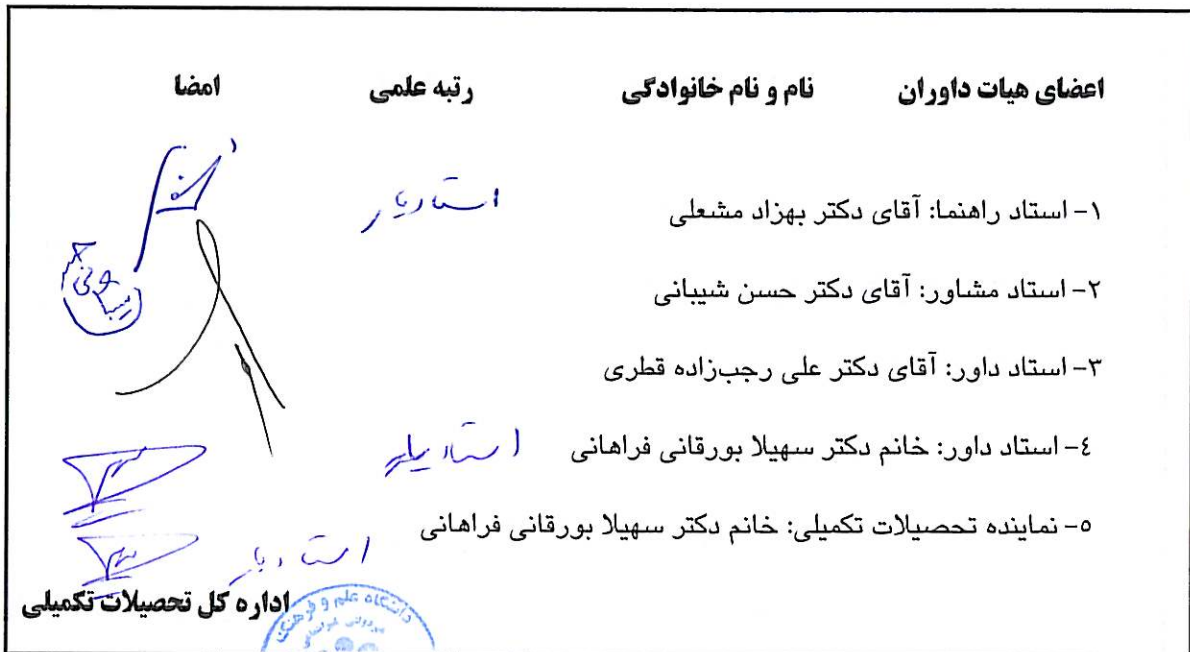 اعضای هیات داوران نام و نام خانوادگی رتبه علمی امضا
۱- استاد راهنما: آقای دکتر بهزاد مشعلی استادیار
۲- استاد مشاور: آقای دکتر حسن شیبانی
۳- استاد داور: آقای دکتر علی رجب‌زاده قطری
٤- استاد داور: خانم دکتر سهیلا بورقانی فراهانی استادیار
٥- نماینده تحصیلات تکمیلی: خانم دکتر سهیلا بورقانی فراهانی استادیار
اداره کل تحصیلات تکمیلی
دانشگاه علم و فرهنگ